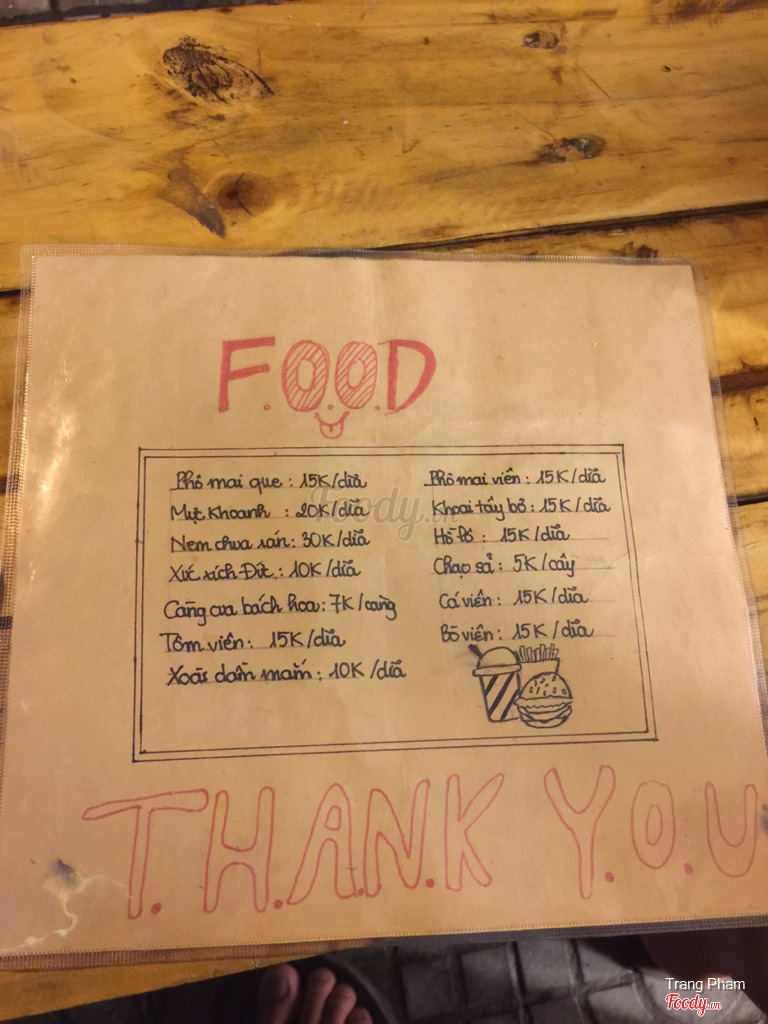 F.O.O.D
Phô mai que : 15K/dĩa
Mực khoanh : 20K/dĩa
Nem chua rán : 30K/dĩa
Xúc xích Đức : 10K/dĩa
Càng cua bách hoa : 7K/càng
Tôm viên : 15K/dĩa
Xoài dầm mắm : 10K/dĩa
Phô mai viên : 15K/dĩa
Khoai tây bơ : 15K/dĩa
Hồ lô : 15K/dĩa
Chạo sả : 5K/cây
Cá viên : 15K/dĩa
Bò viên : 15K/dĩa
T.H.A.N.K Y.O.U
Foody.vn
Trang Pham
Foody.vn